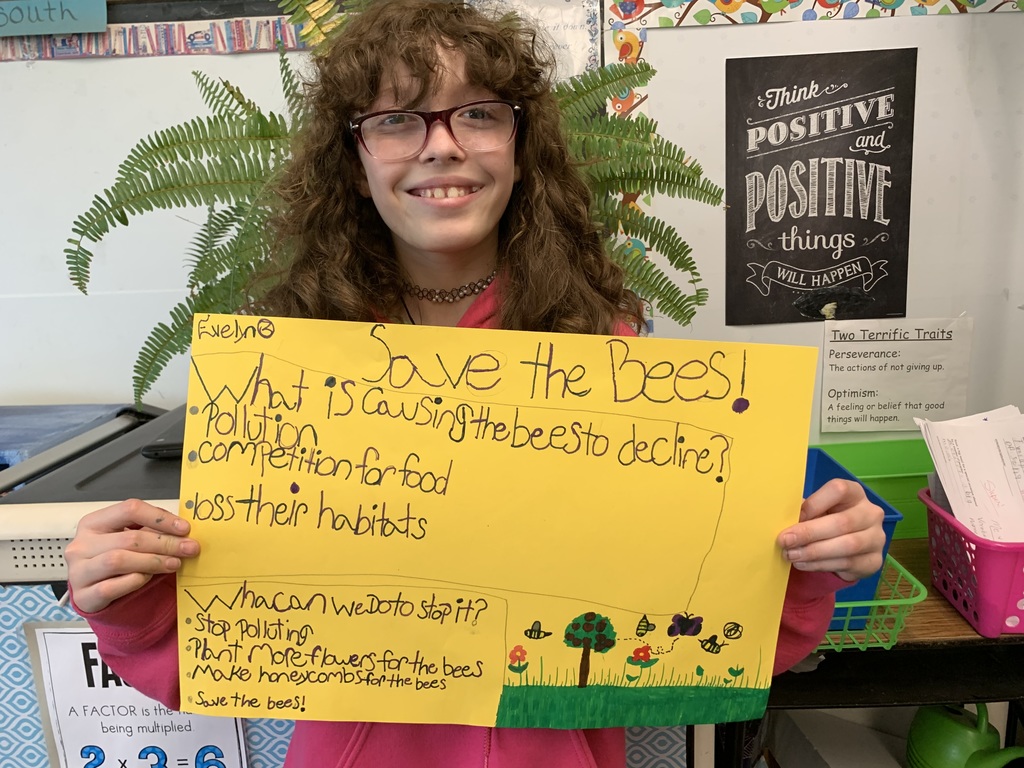 South
Think
POSITIVE
and
POSITIVE
things
WILL HAPPEN
Two Terrific Traits
Perseverance:
The actions of not giving up.
Optimism:
A feeling or belief that good
things will happen.
Evelyn
Save the Bees!
What is causing the bees to decline?
Pollution
competition for food
loss their habitats
Wha can we Do to stop it?
Stop polluting
Plant More flowers for the bees
Make honeycombs for the bees
Save the bees!
A FACTOR is the
being multiplied
2 x 3 = 6